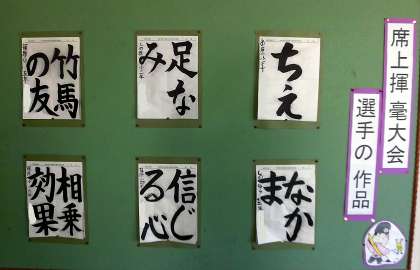 席上揮毫大会
選手の作品
ちえ
足な
み
竹馬
の友
なか
ま
信じ
る心
相乗
効果